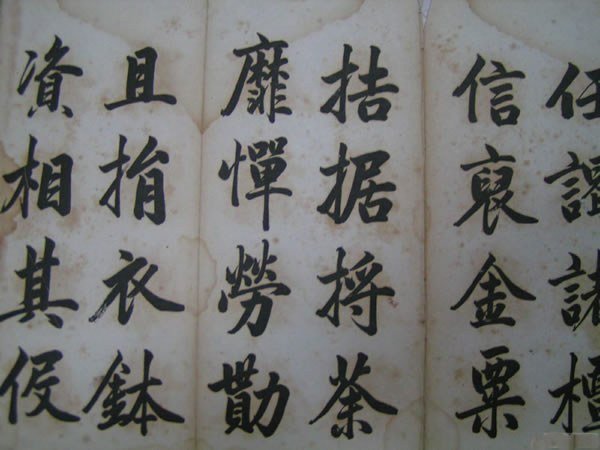 任諸檀
信裒金粟
拮据捋荼
靡憚勞勩
且捐衣鉢
資相其伇